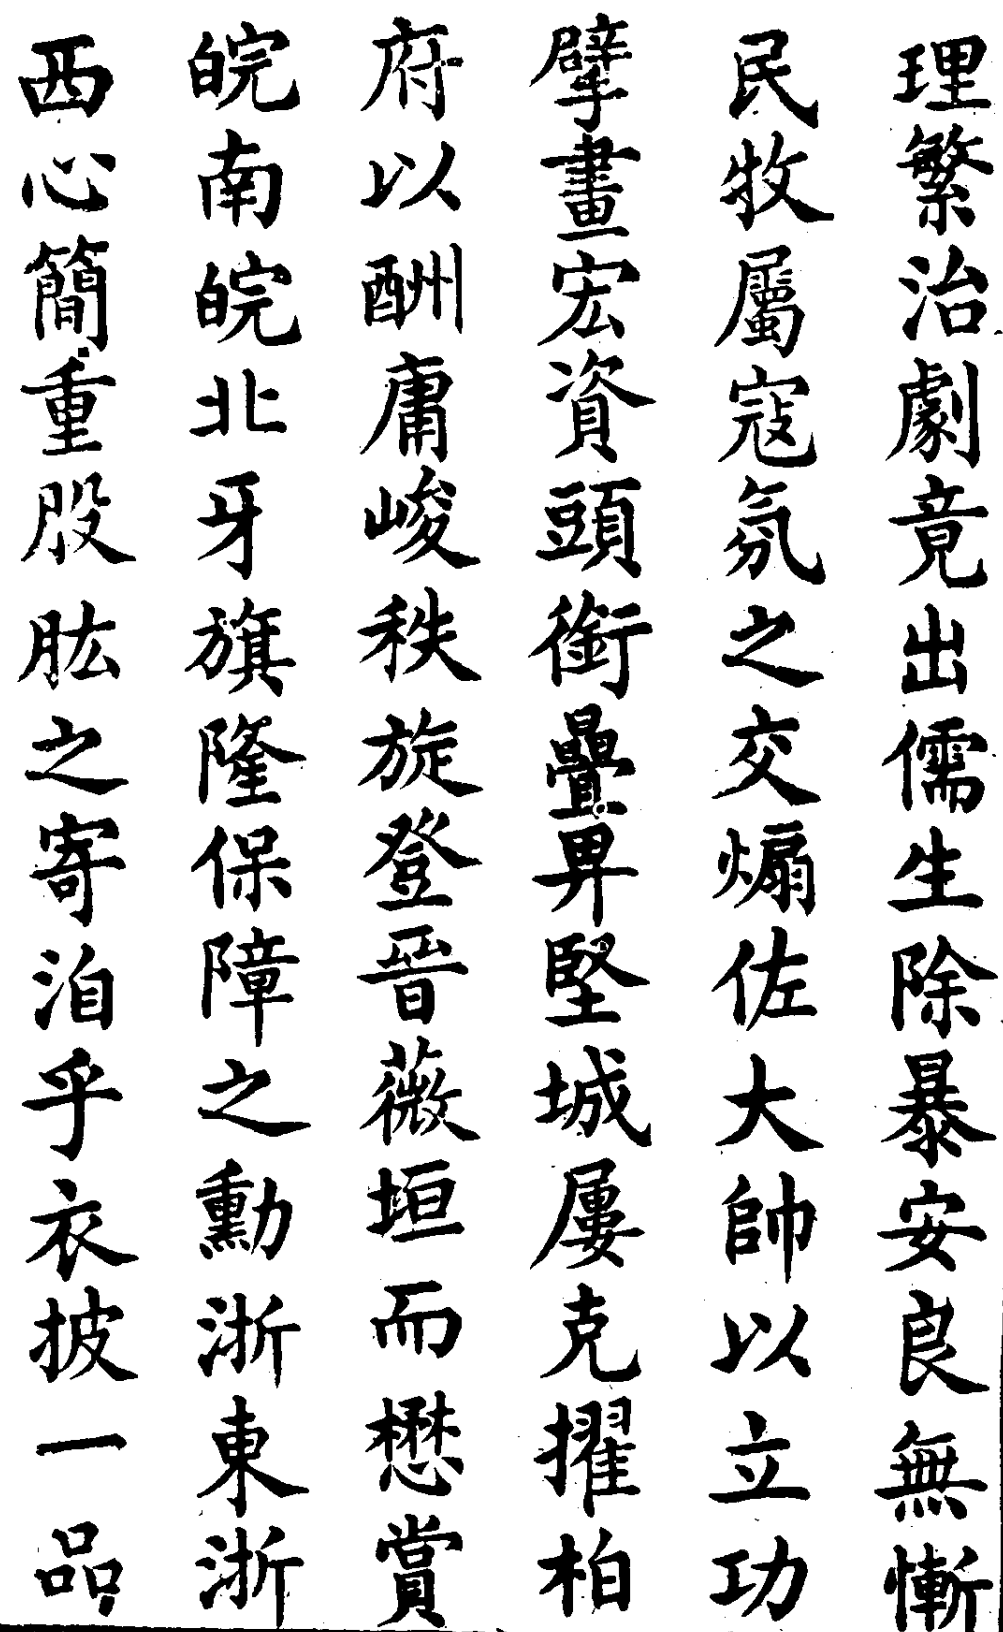 理繁治劇竟出儒生除暴安良無慚
民牧屬寇氛之交煽佐大帥以立功
擘畫宏資頭銜疊畀堅城屢克擢柏
府以酬庸峻秩旋登晉薇垣而懋賞
皖南皖北牙旗隆保障之勳浙東浙
西心簡重股肱之寄洎乎衣披一品